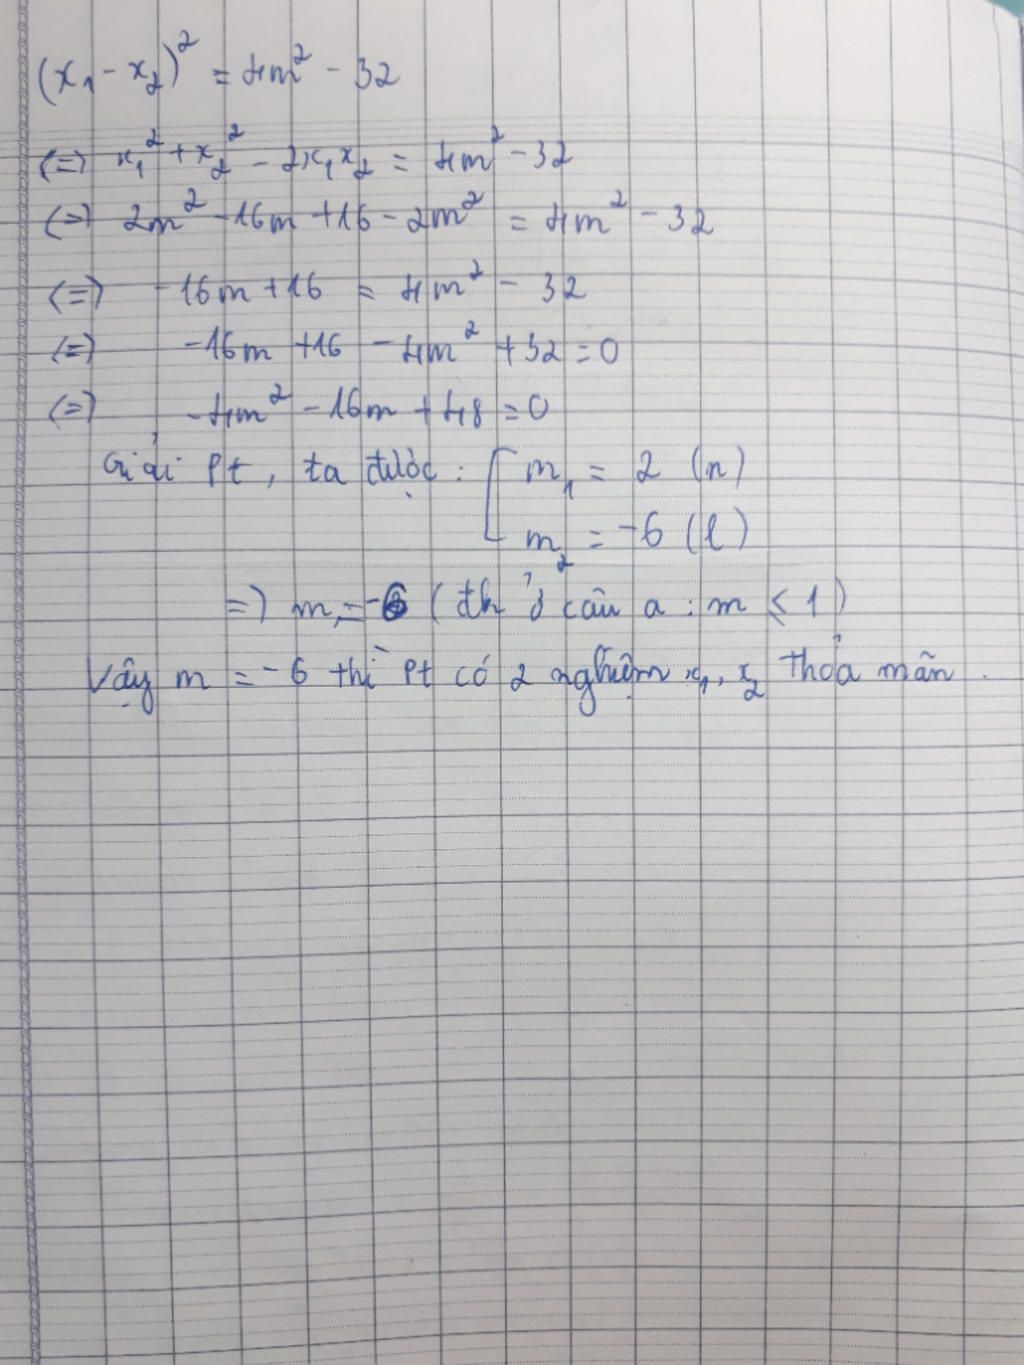 (x₁ - x₂)² = 4m² - 32
(=) x₁² + x₂² - 2x₁x₂ = 4m² - 32
(=) 2m² - 16m + 16 - 2m² = 4m² - 32
(=) - 16m + 16 = 4m² - 32
(=) -16m + 16 - 4m² + 32 = 0
(=) -4m² - 16m + 48 = 0
Giải Pt, ta được : [ m₁ = 2 (n)
m₂ = -6 (l)
=) m = -6 ( đk ở câu a : m < 1 )
Vậy m = -6 thì Pt có 2 nghiệm x₁, x₂ thỏa mãn .